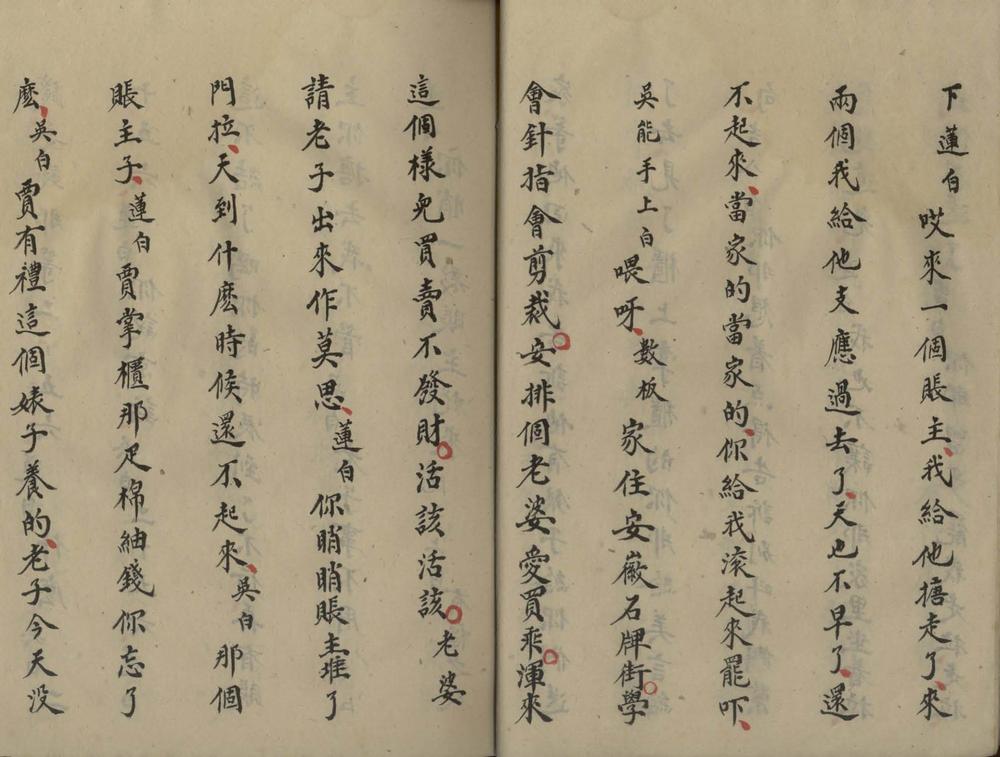 下蓮白哎來一個賬主、我給他搪走了、來
兩個我給他支應過去了、天也不早了、還
不起來、當家的當家的、你給我滚起來罷吓、
吳能手上白喂呀、數板家住安徽石牌街○學
會針指會剪裁○安排個老婆愛買乖○渾來
這個樣皃買賣不發財○活該活該○老婆
請老子出來作莫思、蓮白你睄睄賬主堆了
門拉、天到什麽時候、還不起來、吳白那個
賬主子、蓮白賈掌櫃那疋棉紬錢你忘了
麽、吳白賈有禮這個婊子養的、老子今天没